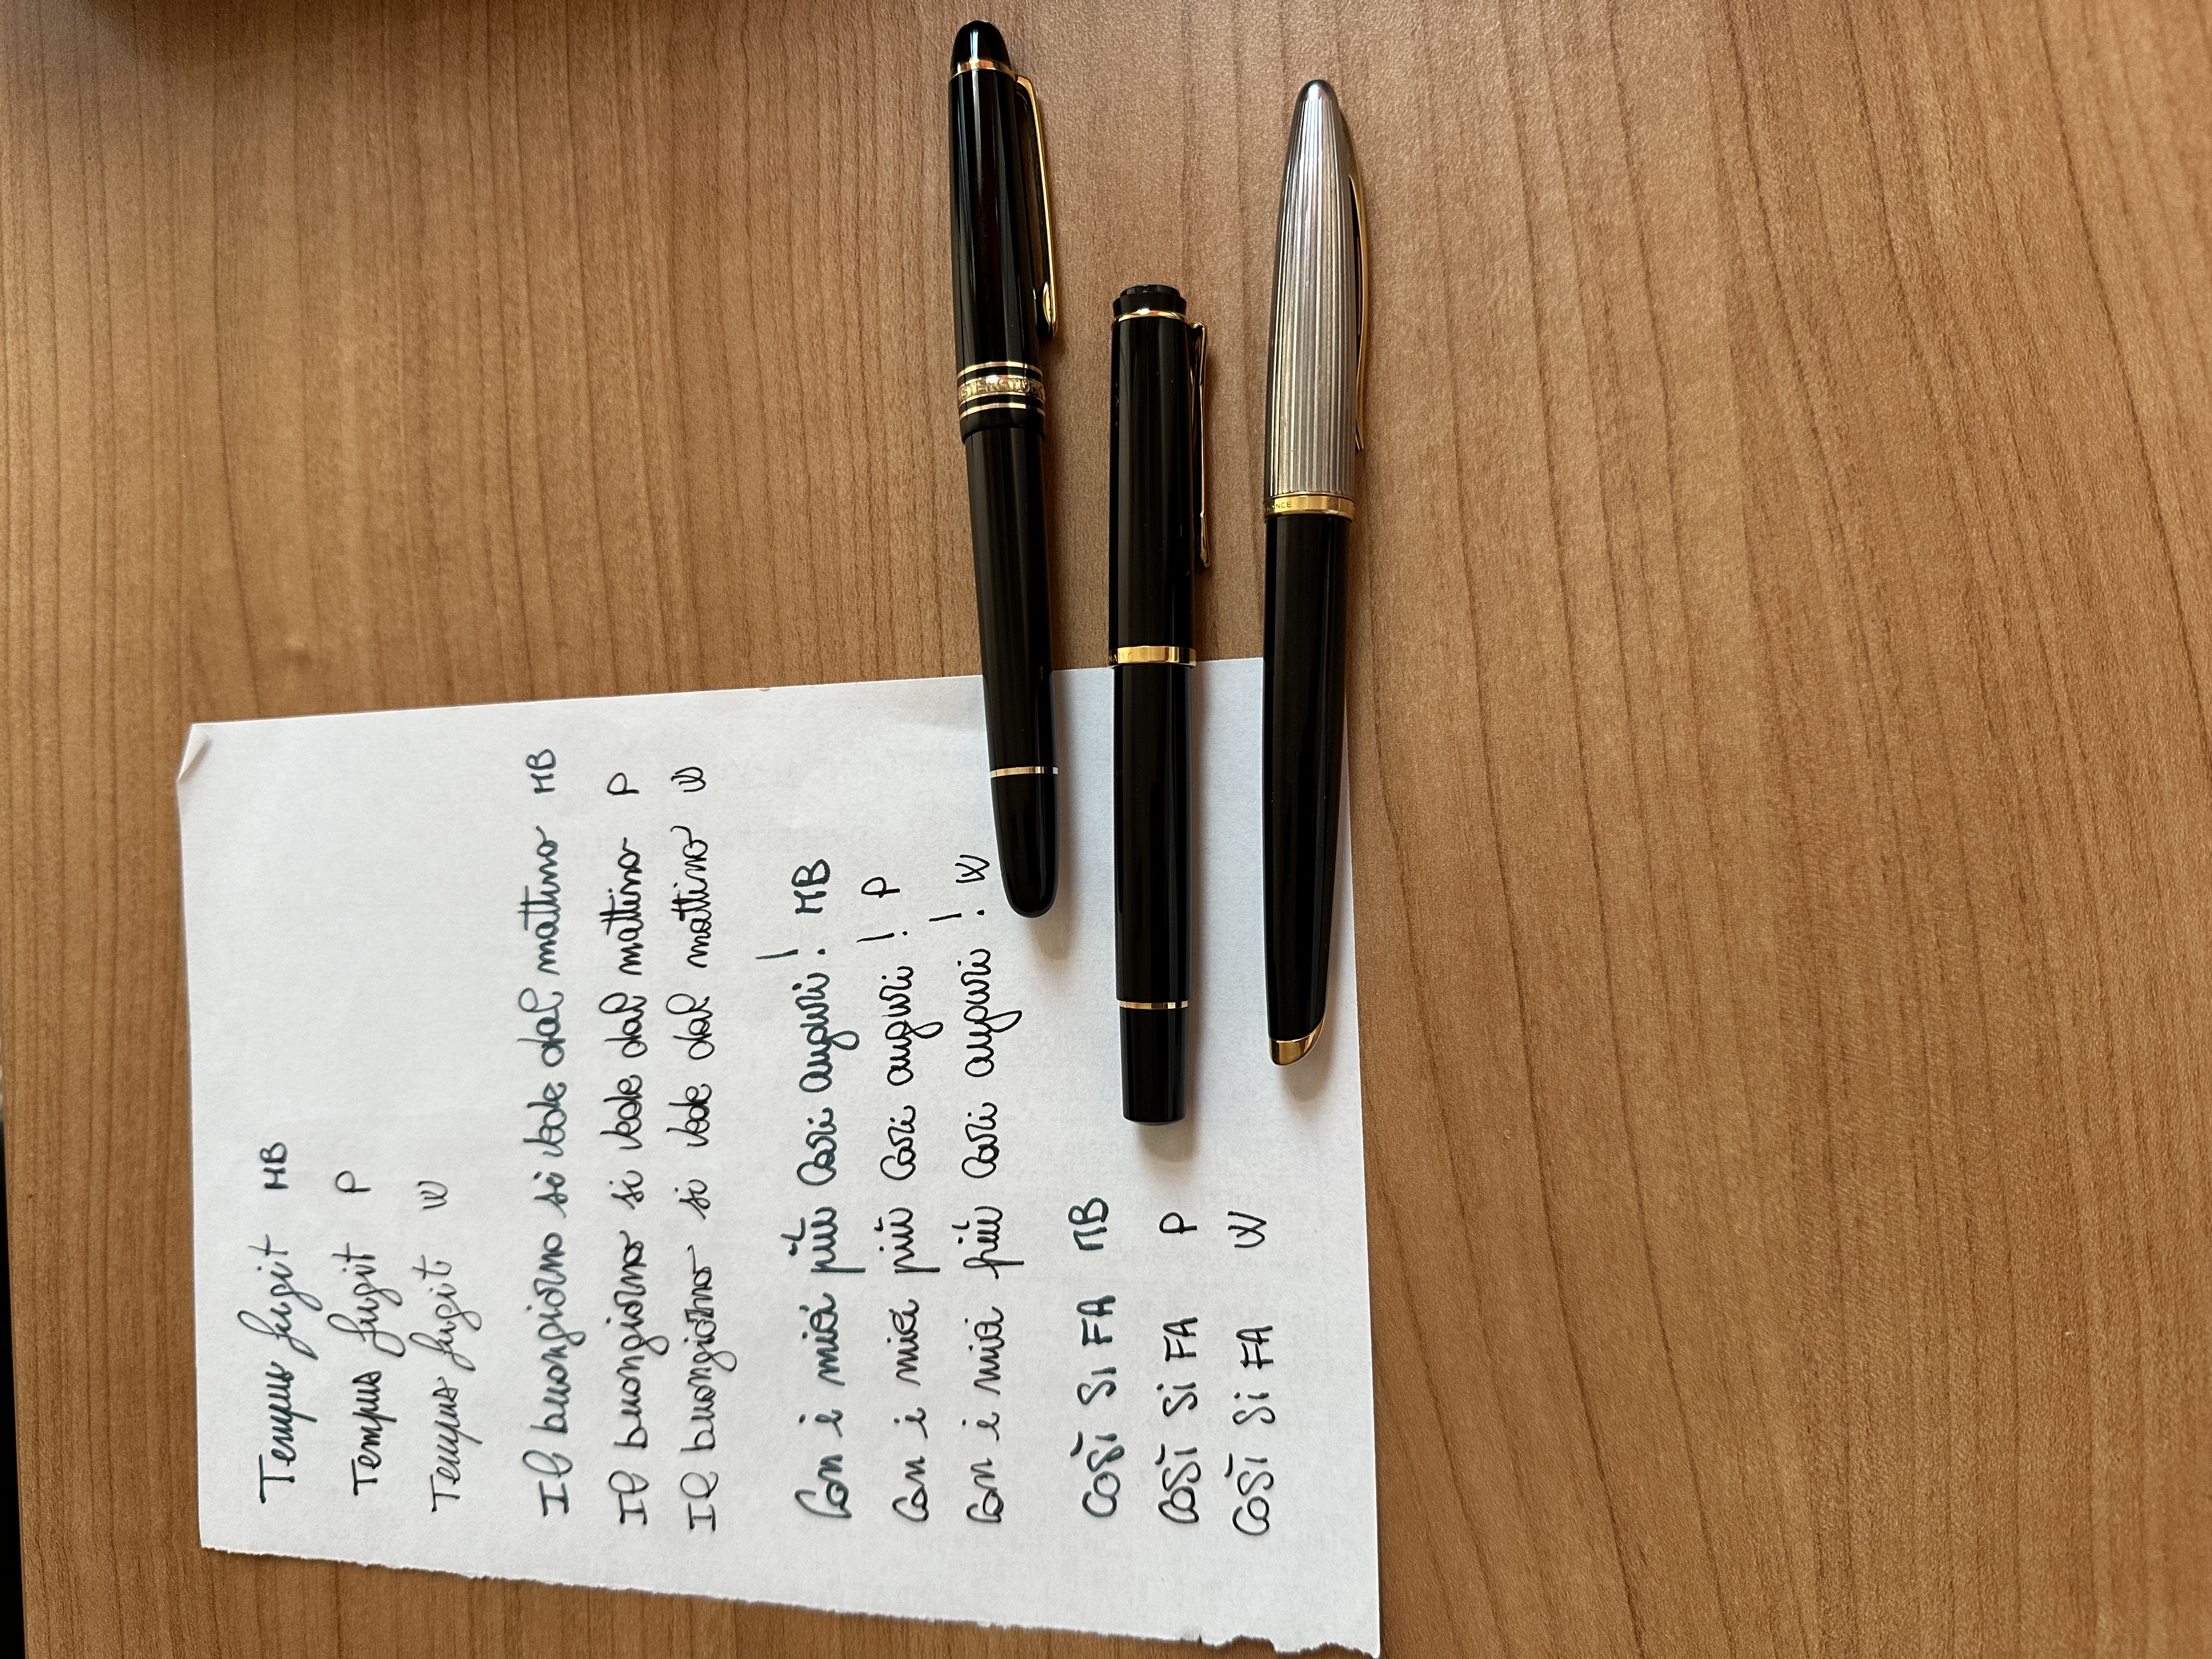 Tempus fugit MB
Tempus fugit P
Tempus fugit W
Il buongiorno si vede dal mattino MB
Il buongiorno si vede dal mattino P
Il buongiorno si vede dal mattino W
Con i miei più cari auguri! MB
Con i miei più cari auguri! P
Con i miei più cari auguri! W
COSÌ SI FA MB
COSÌ SI FA P
COSÌ SI FA W